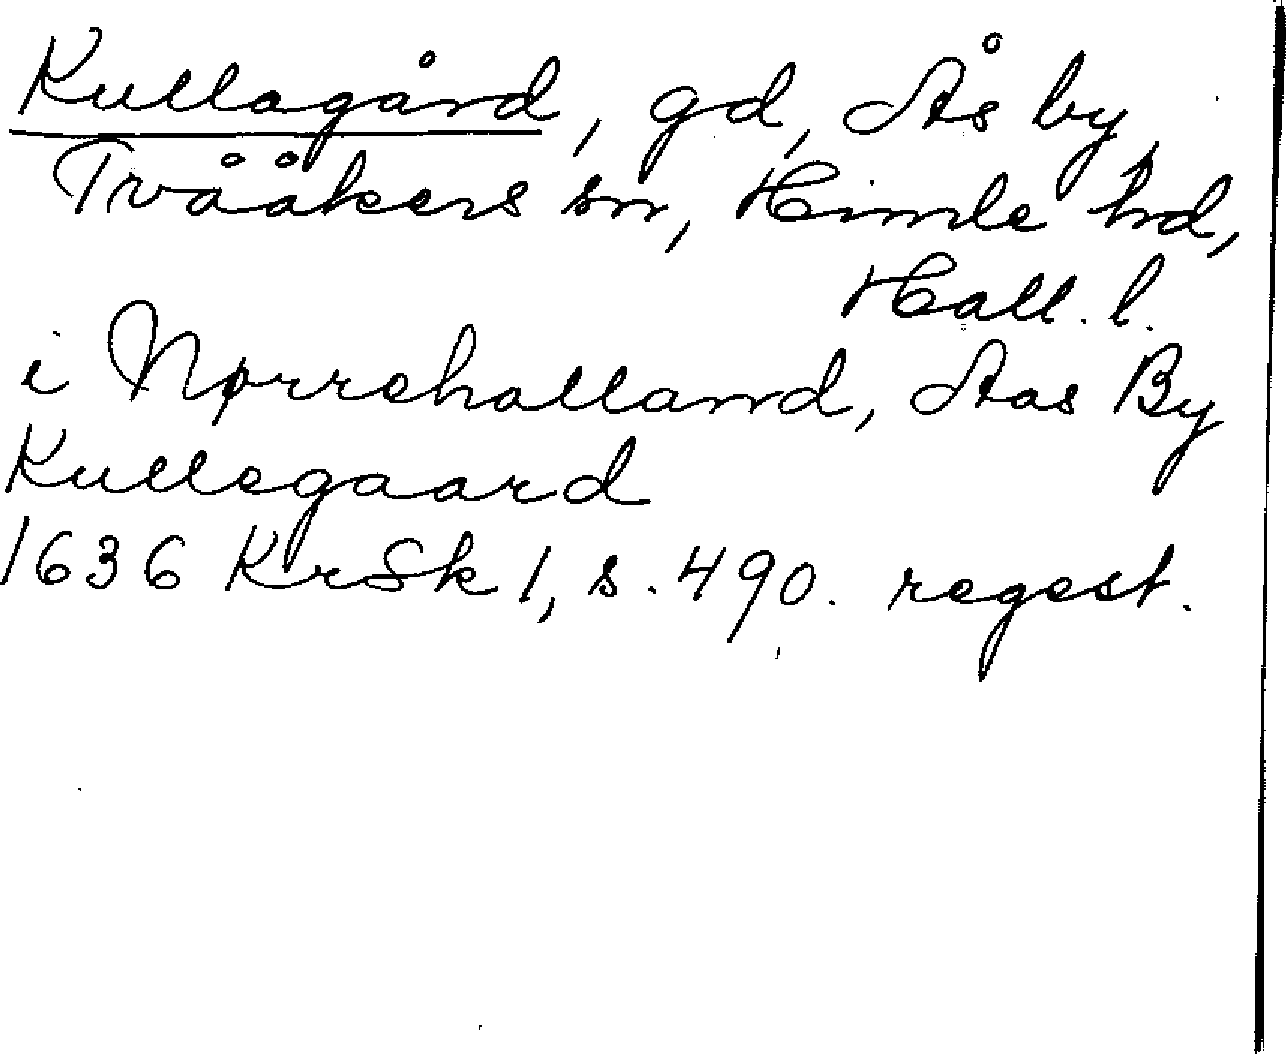 Kullagård, gd, Ås by,
Tvååkers sn, Himle hd,
Hall. l.
i Nørrehalland, Aas By
Kullegaard
1636 KrSk 1, s. 490. regest.